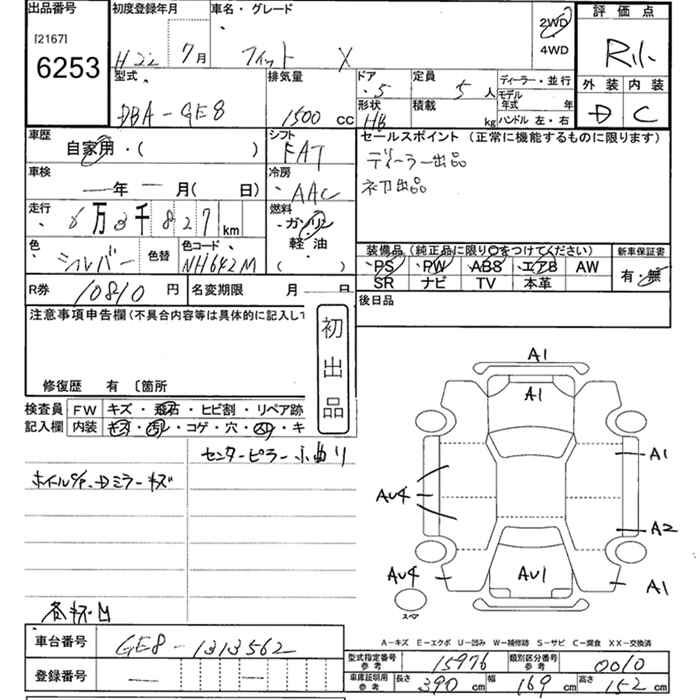 出品番号 初度登録年月 車名・グレード 2WD 4WD 評価点
[2167] 6253 H22 7月 フィット X R1
型式 排気量 ドア 定員 ディーラー・並行 外装 内装
DBA-GE8 1500 CC 5 5人 モデル年式 年 D C
形状 積載 kg ハンドル 左・右
HB
車歴 自家用・( ) シフト FAT セールスポイント (正常に機能するものに限ります)
ディーラー出品
初出品
車検 年 月( 日) 冷房 AAC
走行 6万3千827km 燃料 ガソリン 軽油 ( )
色 シルバー 色替 色コード NH642M
装備品 (純正品に限り○をつけてください) 新車保証書
PS PW ABS エアB AW 有・無
SR ナビ TV 本革
R券 10810円 名変期限 月 後日品
注意事項申告欄(不具合内容等は具体的に記入して
初出品
修復歴 有 〔箇所
検査員記入欄 FW キズ・飛石・ヒビ割・リペア跡
内装 キズ・汚レ・コゲ・穴・スレ・キ
センターピラー小曲り
ホイールC/P.Dミラーキズ
各キズ凹
A1
A1
A1
AU4
A2
AU4 AU1 A1
スペア
A-キズ E-エクボ U-凹み W-補修跡 S-サビ C-腐食 XX-交換済
車台番号 GE8-1313562
型式指定番号 参考 15976 類別区分番号 参考 0010
登録番号
車庫証明用 参考 長さ 390cm 幅 169cm 高さ 152cm